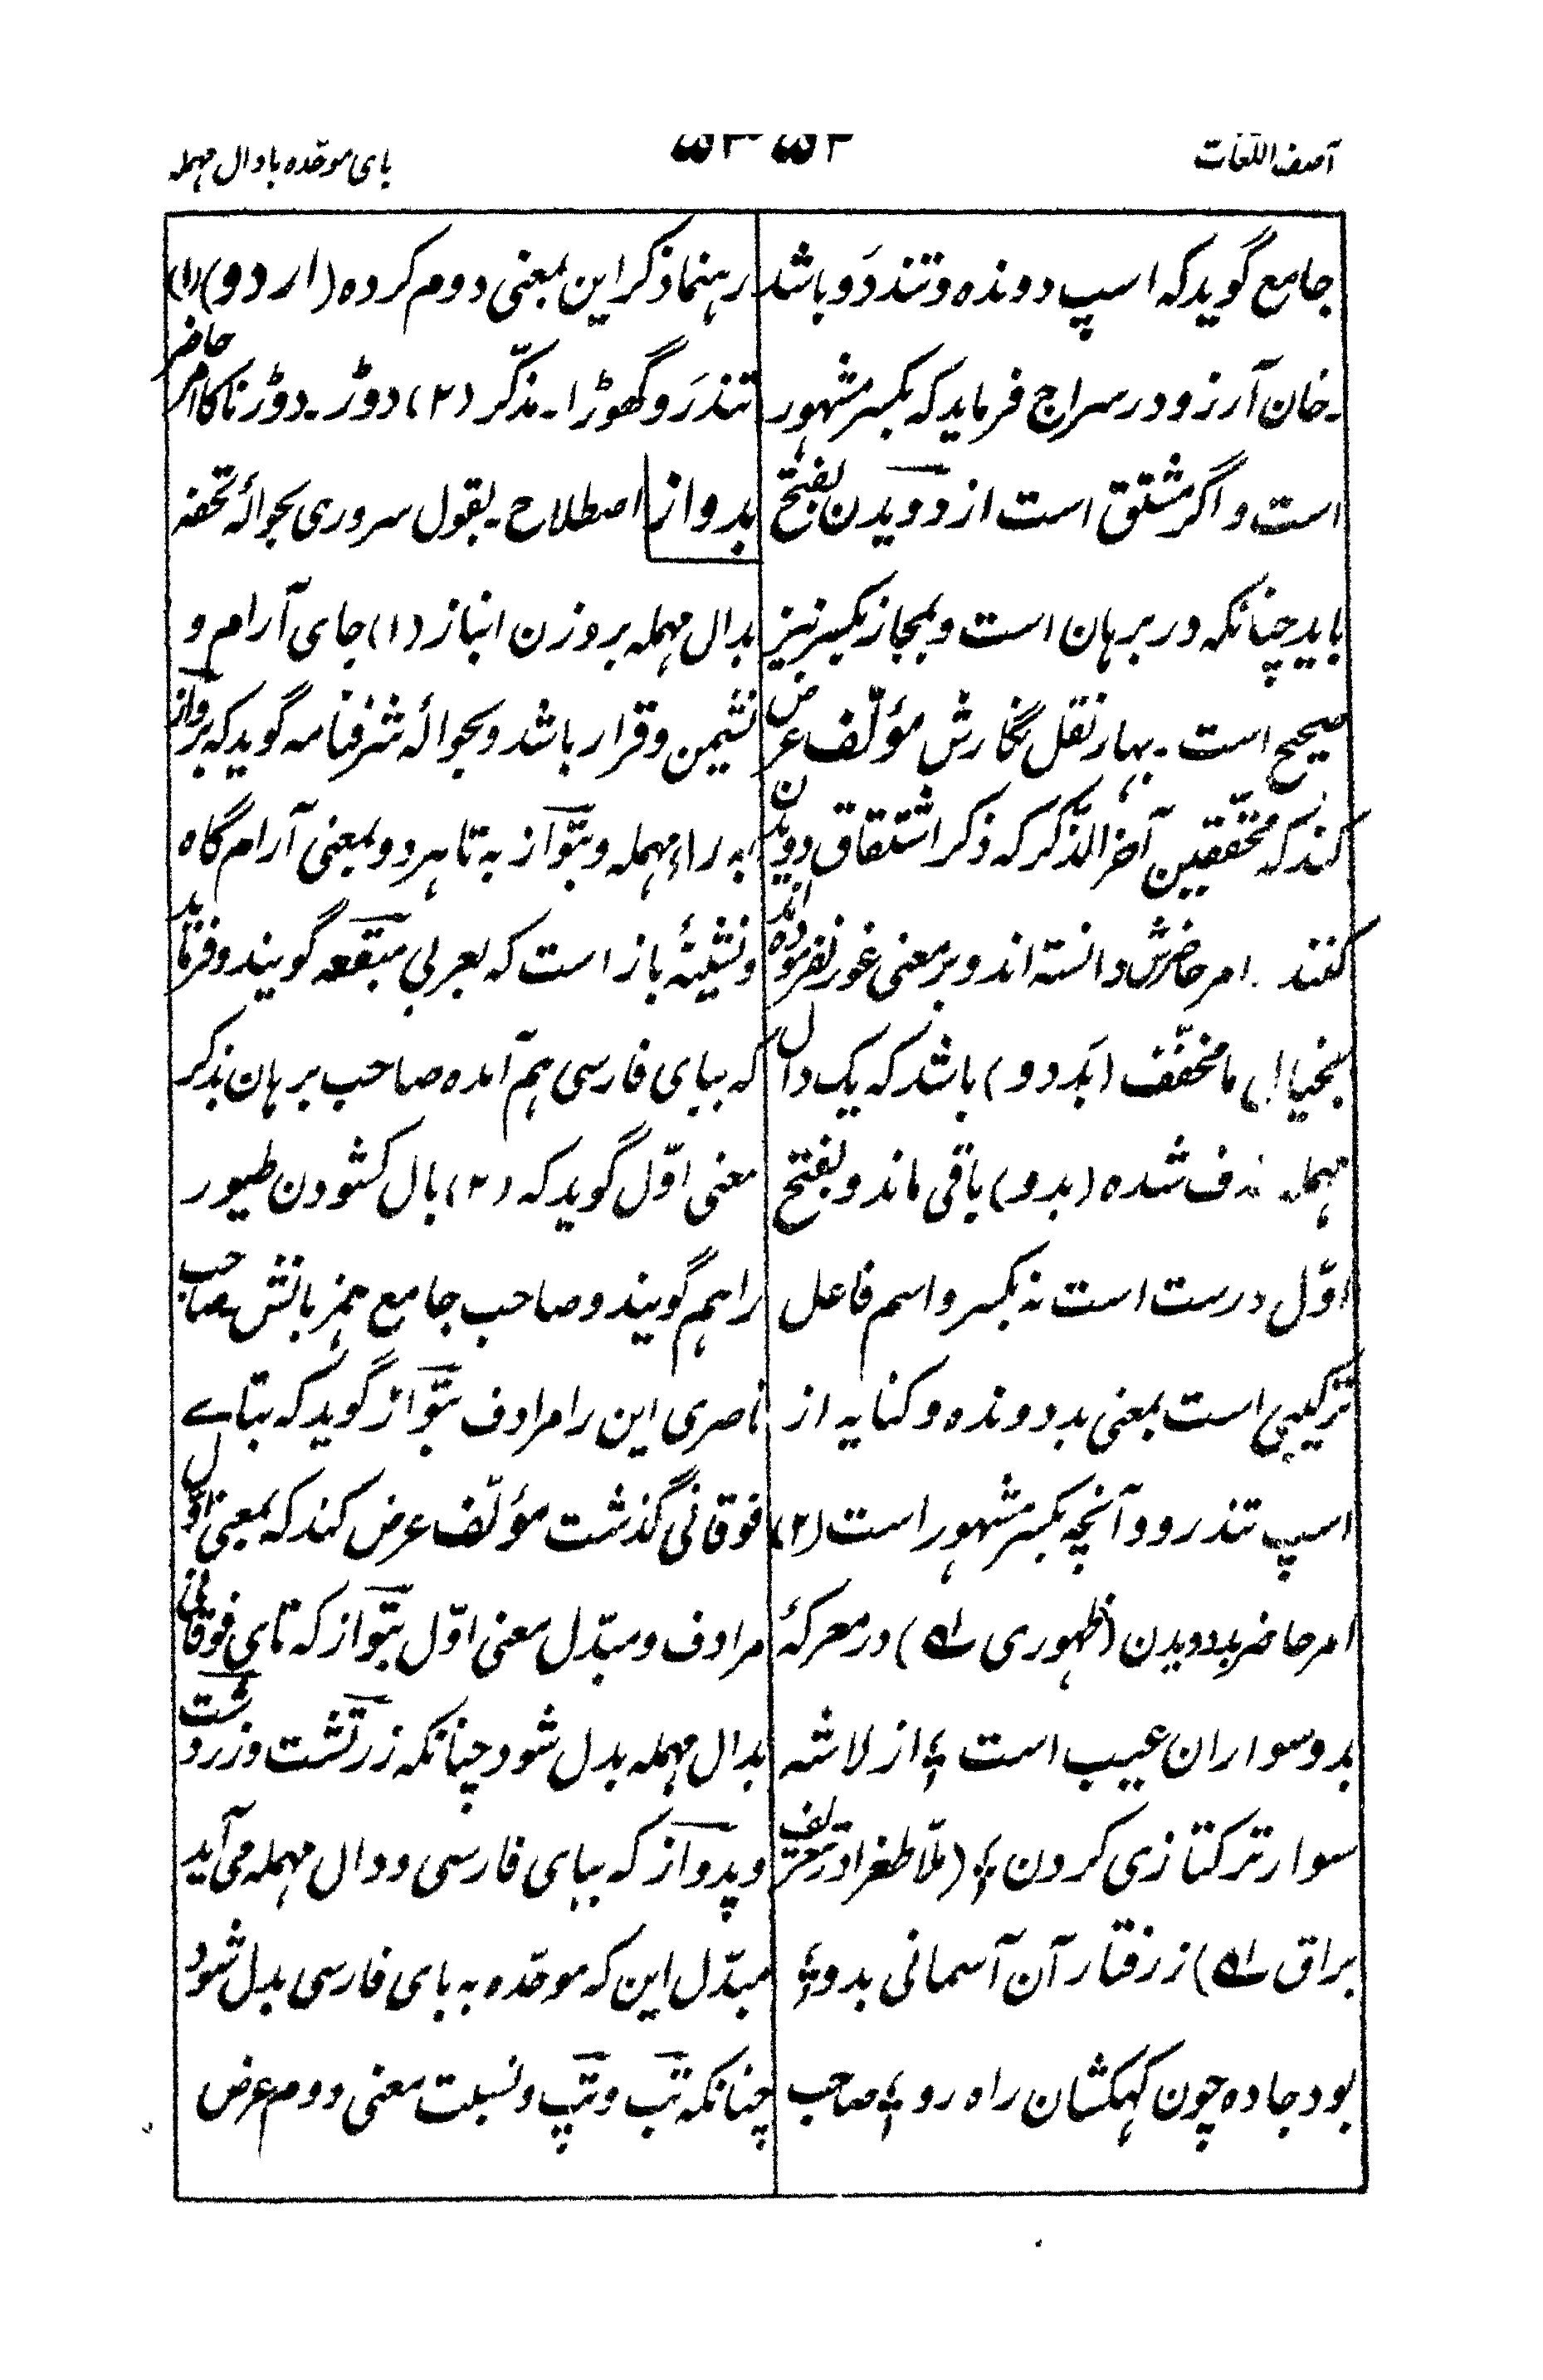 آصف اللغات
بای موحّده با دال مہملہ
جامع گوید کہ اسپ دوندہ و تندَو باشد
۔خان آرزو در سراج فرماید کہ بکسر مشہور
است و اگر مشتق است از دَویدن بفتح
باید چنانکہ در برہان است و بمجاز بکسر نیز
صحیح است ۔ بہار نقل نگارش مؤلّف عرض
کند کہ محقّقین آخر الذّکر کہ ذکر اشتقاق دویدن
کنند امر حاضرش دانستہ اند و بر معنی غور نفرمودہ اند
بخیال ما مخفّف (بَد دو) باشد کہ یک دال
مہملہ حذف شدہ (بدو) باقی ماند و بفتح
اوّل درست است نہ بکسر و اسم فاعل
ترکیبی است بمعنی بد دوندہ و کنایہ از
اسپ تندرو و آنچہ بکسر مشہور است (۲)
امر حاضر بدویدن (ظہوری ؎) در معرکۂ
بدو سواران عیب است ؛ از لاشہ
سوار ترکتازی کردن ؛ (ملّا طغرا در تعریف
براق ؎) ز رفتار آن آسمانی بدو ؛
بود جادہ چون کہکشان راہ رو ؛ صاحب
رہنما ذکر این بمعنی دوم کردہ (اردو) (۱)
تندرَو گھوڑا ۔ مذکّر (۲) دوڑ ۔ دوڑنا کا امر حاضر
بدواز اصطلاح ۔ بقول سروری بحوالۂ تحفہ
بدال مہملہ بر وزن انباز (۱) جای آرام و
نشیمن و قرار باشد و بحوالۂ شرفنامہ گوید کہ برواز
بہ راء مہملہ و بتواز بہ تا ہر دو بمعنی آرام گاہ
و نشینۂ باز است کہ بعربی مبقعہ گویند و فرماید
کہ ببای فارسی ہم آمدہ صاحب برہان بذکر
معنی اوّل گوید کہ (۲) بال کشودن طیور
را ہم گویند و صاحب جامع ہمزبانش صاحب
ناصری این را مرادف بتواز گوید کہ بتاے
فوقانی گذشت مؤلّف عرض کند کہ بمعنی اوّل
مرادف و مبدّل معنی اوّل بتواز کہ تای فوقانی
بدال مہملہ بدل شود چنانکہ زرتشت و زردشت
و پدواز کہ ببای فارسی و دال مہملہ می آید
مبدّل این کہ موحّدہ بہ بای فارسی بدل شود
چنانکہ تب و تپ و نسبت معنی دوم عرض